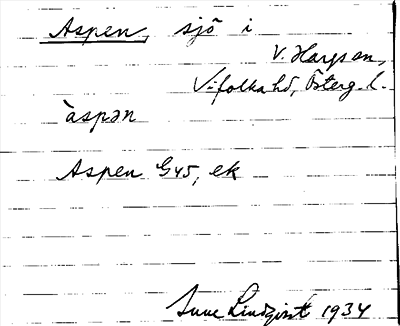 Aspen, sjö i
V. Harg sn,
Vifolka hd, Österg. l.
àspən
Aspen G45, ek
Sune Lindqvist 1934